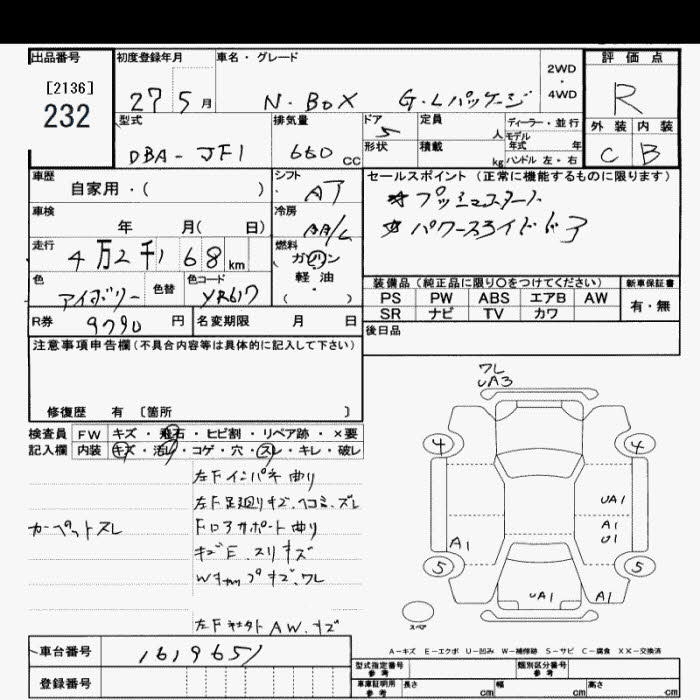 出品番号 初度登録年月 車名・グレード 評価点
[2136]
232
27 5月 N・BOX G・Lパッケージ 2WD・4WD R
型式 排気量 ドア 定員 ディーラー・並行 外装 内装
DBA-JF1 660cc 5 人 モデル年式 年 C B
形状 積載 kg ハンドル 左・右
車歴 シフト セールスポイント(正常に機能するものに限ります)
自家用・( ) AT ☆プッシュスタート
車検 冷房 ☆パワースライドドア
年 月( 日) AA/C
走行 燃料
4万2千168km ガソリン・軽油・( )
色 色替 色コード 装備品(純正品に限り〇をつけてください) 新車保証書
アイボリー YR617 PS PW ABS エアB AW 有・無
SR ナビ TV カワ
R券 9790円 名変期限 月 日 後日品
注意事項申告欄(不具合内容等は具体的に記入して下さい)
修復歴 有 〔箇所 〕
検査員 FW キズ・飛石・ヒビ割・リペア跡・×要
記入欄 内装 キズ・汚レ・コゲ・穴・スレ・キレ・破レ
左Fインパネ曲り
左F足廻りキズ、ヘコミ、ズレ
カーペットスレ Fロアサポート曲り
キズE、スリキズ
Wキャップキズ、ワレ
AW、キズ
ワレ
UA3
4 4
UA1
A1
U1
A1
5 5
UA1 A1
スペア
A-キズ E-エクボ U-凹み W-補修跡 S-サビ C-腐食 XX-交換済
車台番号 1619651
登録番号
型式指定番号 参考 類別区分番号 参考
車庫証明用 参考 長さ cm 幅 cm 高さ cm